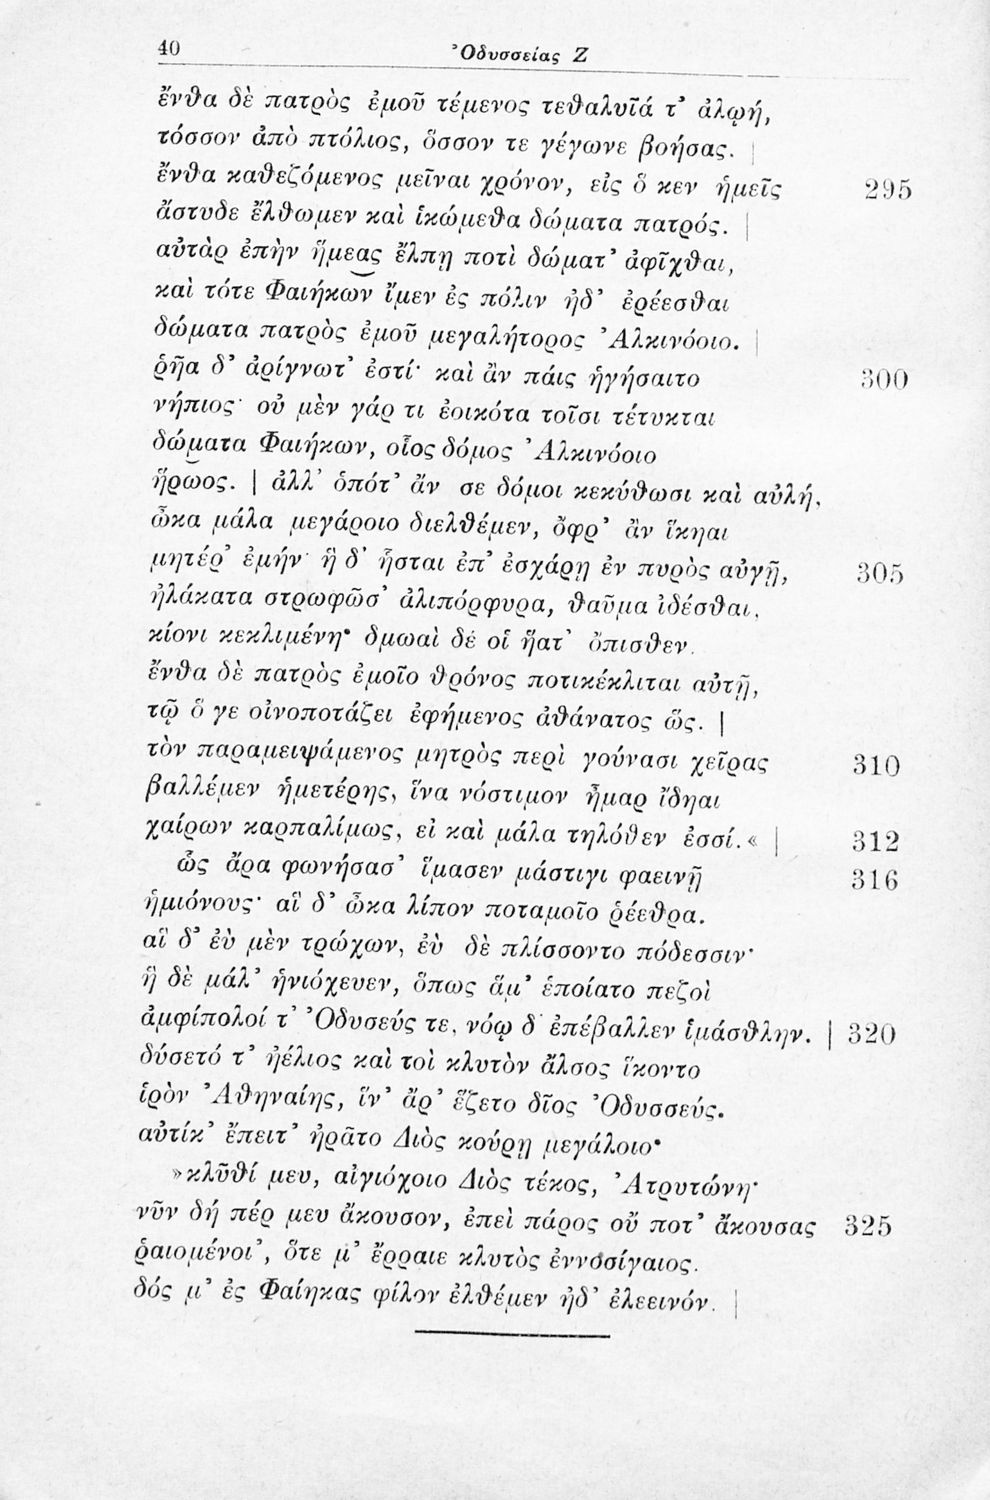 40
Ὀδυσσείας Ζ
ἔνθα δὲ πατρὸς ἐμοῦ τέμενος τεθαλυῖά τ’ ἀλῳή,
τόσσον ἀπὸ πτόλιος, ὅσσον τε γέγωνε βοήσας. |
ἔνθα καθεζόμενος μεῖναι χρόνον, εἰς ὅ κεν ἡμεῖς 295
ἄστυδε ἔλθωμεν καὶ ἱκώμεθα δώματα πατρός. |
αὐτὰρ ἐπὴν ἥμεας ἔλπῃ ποτὶ δώματ’ ἀφῖχθαι,
καὶ τότε Φαιήκων ἴμεν ἐς πόλιν ἠδ’ ἐρέεσθαι
δώματα πατρὸς ἐμοῦ μεγαλήτορος Ἀλκινόοιο. |
ῥῆα δ’ ἀρίγνωτ’ ἐστί· καὶ ἂν πάις ἡγήσαιτο 300
νήπιος· οὐ μὲν γάρ τι ἐοικότα τοῖσι τέτυκται
δώματα Φαιήκων, οἷος δόμος Ἀλκινόοιο
ἥρωος. | ἀλλ’ ὁπότ’ ἄν σε δόμοι κεκύθωσι καὶ αὐλή,
ὦκα μάλα μεγάροιο διελθέμεν, ὄφρ’ ἂν ἵκηαι
μητέρ’ ἐμήν· ἣ δ’ ἧσται ἐπ’ ἐσχάρῃ ἐν πυρὸς αὐγῇ, 305
ἠλάκατα στρωφῶσ’ ἁλιπόρφυρα, θαῦμα ἰδέσθαι,
κίονι κεκλιμένη· δμωαὶ δέ οἱ ἥατ’ ὄπισθεν.
ἔνθα δὲ πατρὸς ἐμοῖο θρόνος ποτικέκλιται αὐτῇ,
τῷ ὅ γε οἰνοποτάζει ἐφήμενος ἀθάνατος ὥς. |
τὸν παραμειψάμενος μητρὸς περὶ γούνασι χεῖρας 310
βαλλέμεν ἡμετέρης, ἵνα νόστιμον ἦμαρ ἴδηαι
χαίρων καρπαλίμως, εἰ καὶ μάλα τηλόθεν ἐσσί.« | 312
ὣς ἄρα φωνήσασ’ ἵμασεν μάστιγι φαεινῇ 316
ἡμιόνους· αἳ δ’ ὦκα λίπον ποταμοῖο ῥέεθρα.
αἳ δ’ ἐὺ μὲν τρώχων, ἐὺ δὲ πλίσσοντο πόδεσσιν·
ἣ δὲ μάλ’ ἡνιόχευεν, ὅπως ἅμ’ ἑποίατο πεζοὶ
ἀμφίπολοί τ’ Ὀδυσεύς τε, νόῳ δ’ ἐπέβαλλεν ἱμάσθλην. | 320
δύσετό τ’ ἠέλιος καὶ τοὶ κλυτὸν ἄλσος ἵκοντο
ἱρὸν Ἀθηναίης, ἵν’ ἄρ’ ἕζετο δῖος Ὀδυσσεύς.
αὐτίκ’ ἔπειτ’ ἠρᾶτο Διὸς κούρῃ μεγάλοιο·
»κλῦθί μευ, αἰγιόχοιο Διὸς τέκος, Ἀτρυτώνη·
νῦν δή πέρ μευ ἄκουσον, ἐπεὶ πάρος οὔ ποτ’ ἄκουσας 325
ῥαιομένοι’, ὅτε μ’ ἔρραιε κλυτὸς ἐννοσίγαιος.
δός μ’ ἐς Φαίηκας φίλον ἐλθέμεν ἠδ’ ἐλεεινόν. |